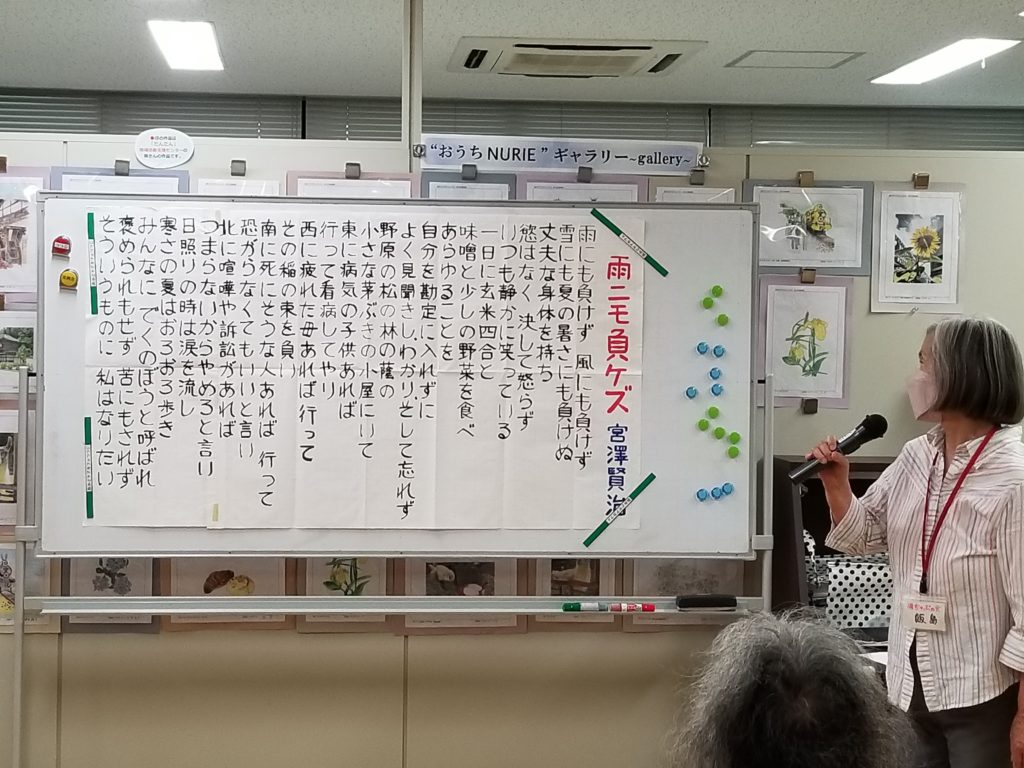 “おうち NURIE ” ギャラリー~gallery~
皆さんの作品です。
雨ニモ負ケズ 宮澤賢治
雨にも負けず 風にも負けず
雪にも夏の暑さにも負けぬ
丈夫な身体を持ち
慾はなく 決して怒らず
いつも静かに笑っている
一日に玄米四合と
味噌と少しの野菜を食べ
あらゆることを
自分を勘定に入れずに
よく見聞きし、わかり、そして忘れず
野原の松の林の蔭の
小さな茅ぶきの小屋にいて
東に病気の子供あれば
行って看病してやり
西に疲れた母あれば 行って
その稲の束を負い
南に死にそうな人あれば 行って
恐がらなくてもいいと言い
北に喧嘩や訴訟があれば
つまらないからやめろと言い
日照りの時は涙を流し
寒さの夏はおろおろ歩き
みんなに でくのぼうと呼ばれ
褒められもせず 苦にもされず
そういうものに 私はなりたい
飯島